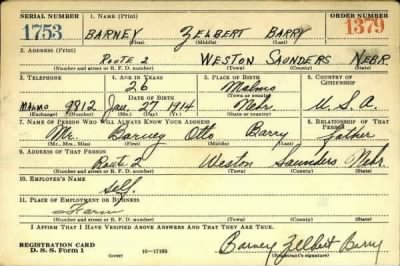 SERIAL NUMBER 1. NAME (Print) ORDER NUMBER
1753 BARNEY ZELBERT BARRY 1379
(First) (Middle) (Last)
2. ADDRESS (Print)
ROUTE 2 WESTON SAUNDERS NEBR.
(Number and street or R. F. D. number) (Town) (County) (State)
3. TELEPHONE 4. AGE IN YEARS 5. PLACE OF BIRTH 6. COUNTRY OF CITIZENSHIP
26 Malmo
DATE OF BIRTH (Town or county)
MALMO 9812 Jan. 27 1914 Nebr. U.S.A.
(Exchange) (Number) (Mo.) (Day) (Yr.) (State or country)
7. NAME OF PERSON WHO WILL ALWAYS KNOW YOUR ADDRESS 8. RELATIONSHIP OF THAT PERSON
Mr. Barney Otto Barry father
(Mr., Mrs., Miss) (First) (Middle) (Last)
9. ADDRESS OF THAT PERSON
Route 2 Weston Saunders Nebr.
(Number and street or R. F. D. number) (Town) (County) (State)
10. EMPLOYER'S NAME
Self.
11. PLACE OF EMPLOYMENT OR BUSINESS
Farm
(Number and street or R. F. D. number) (Town) (County) (State)
I AFFIRM THAT I HAVE VERIFIED ABOVE ANSWERS AND THAT THEY ARE TRUE.
REGISTRATION CARD
D. S. S. Form 1 (over) 16—17105 Barney Zelbert Barry
(Registrant's signature)